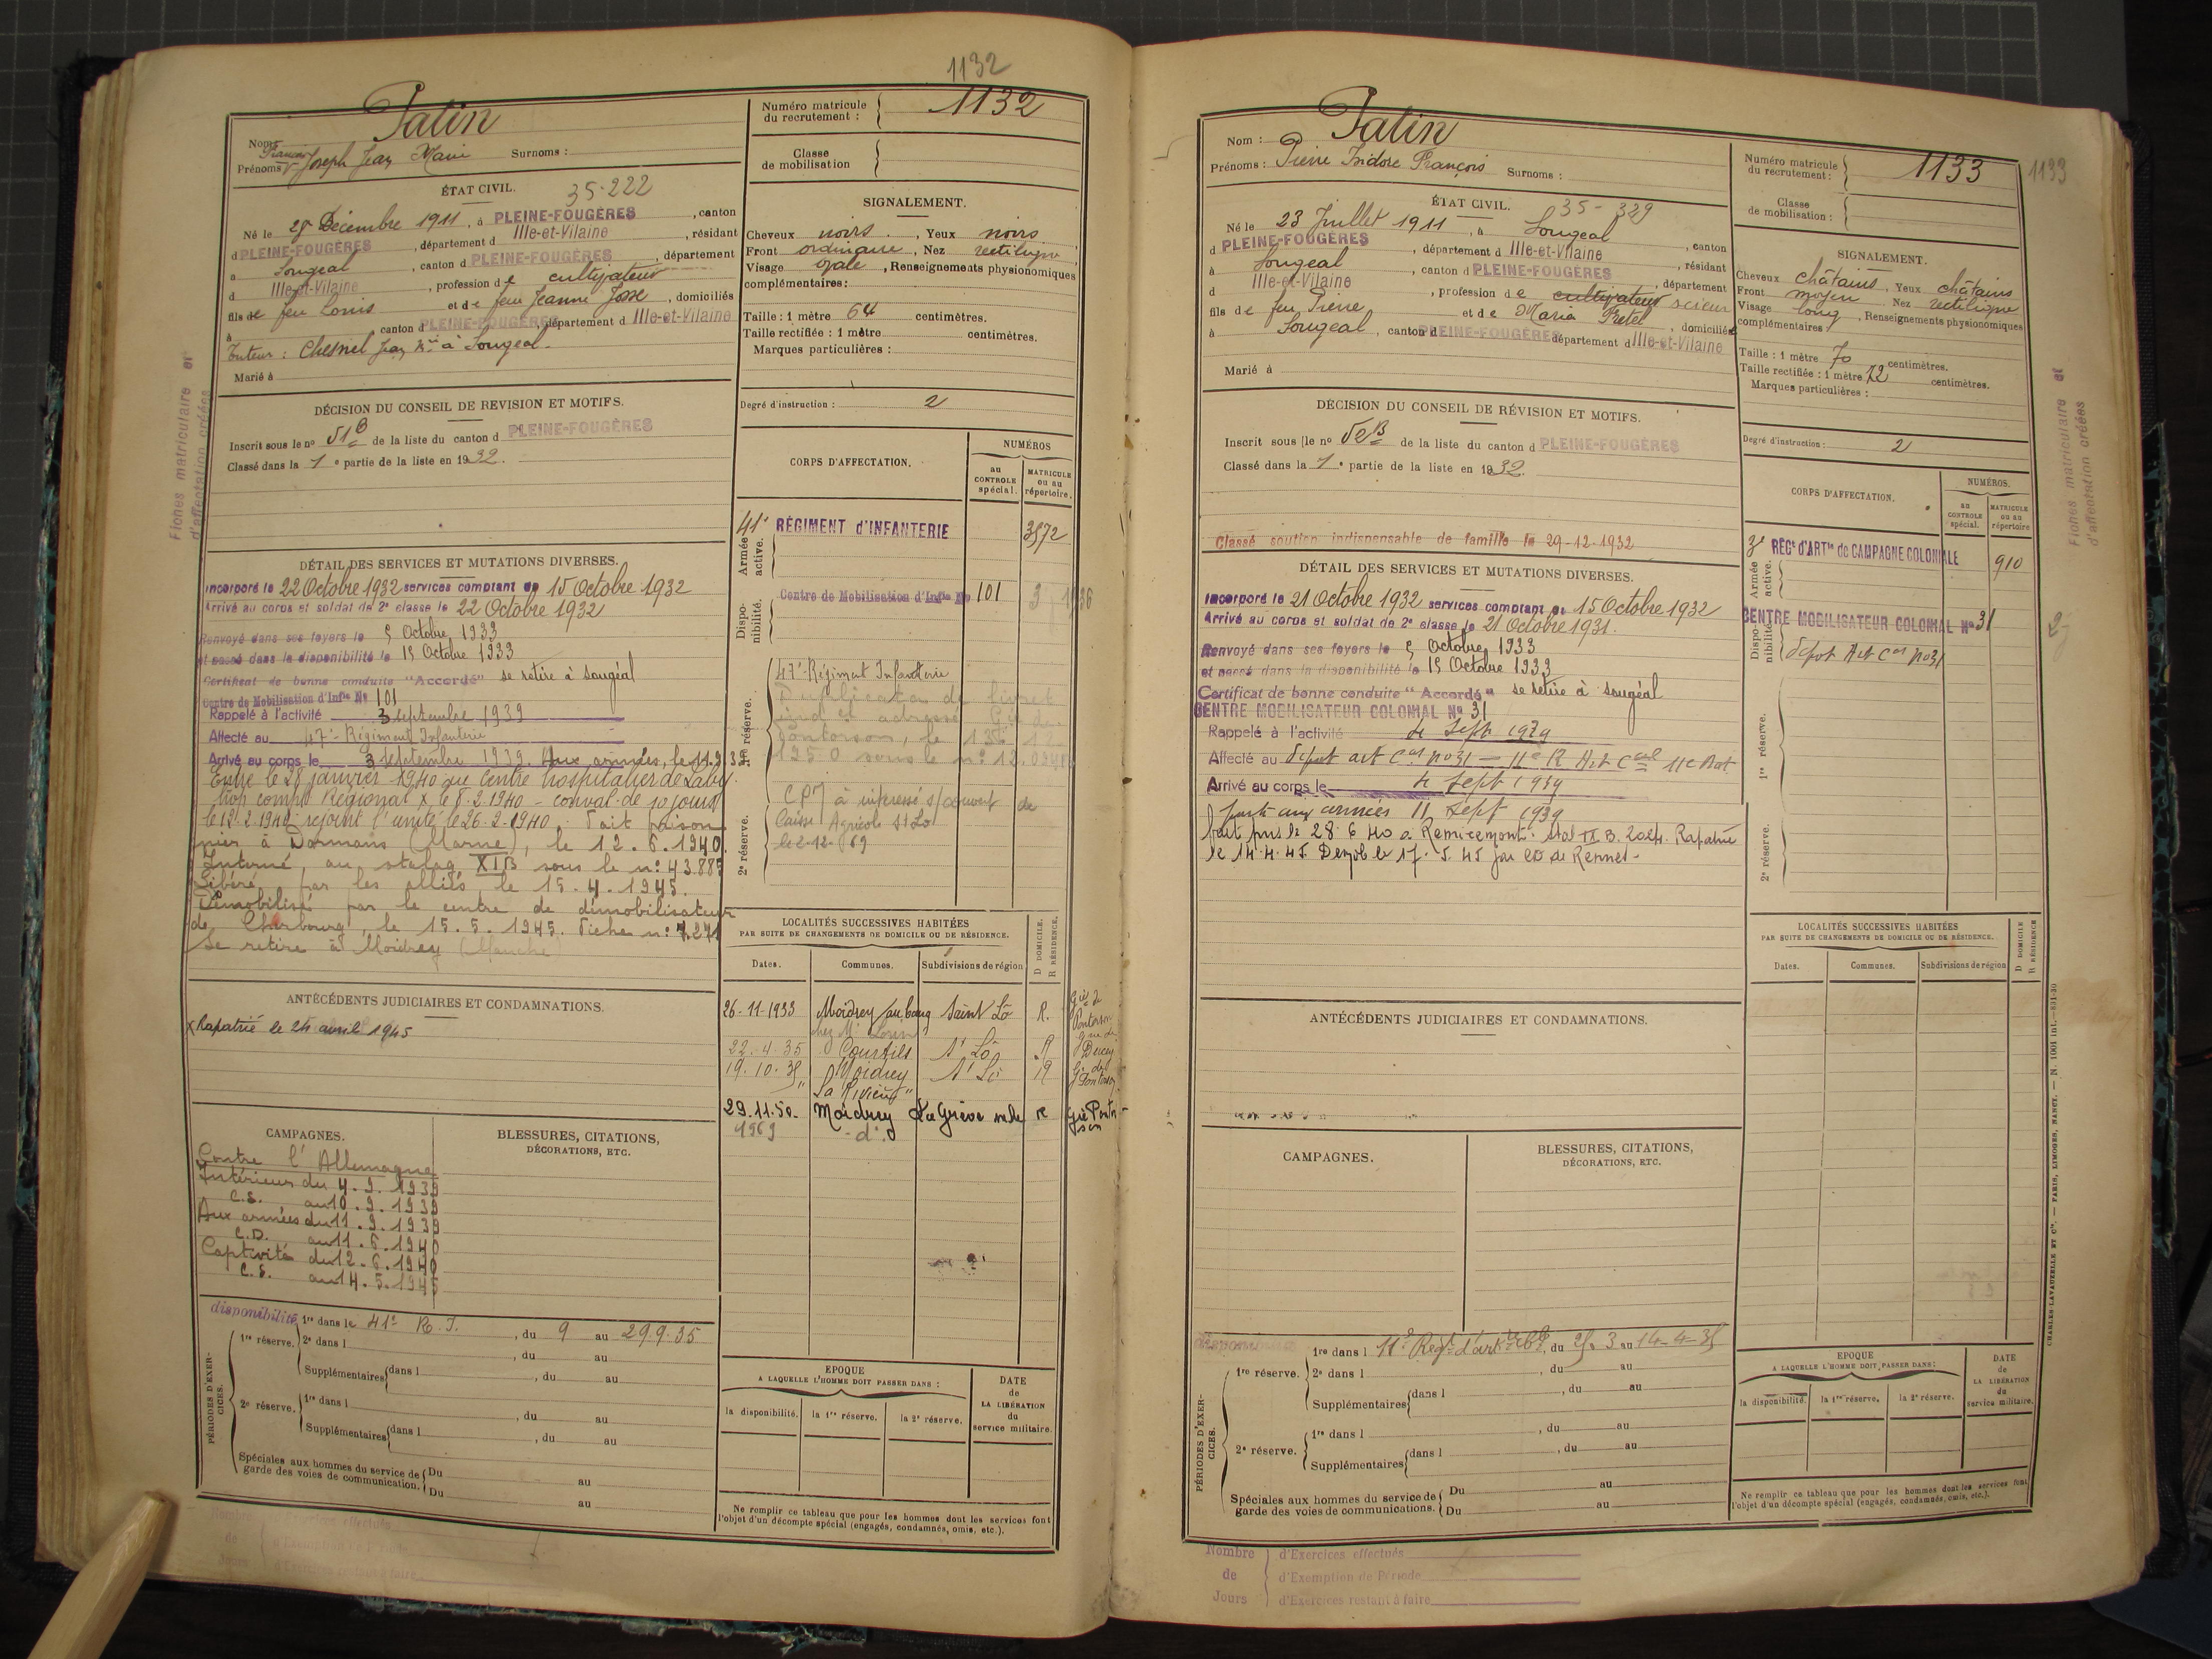 1132
Patin
Nom :
François
Prénoms : Joseph Jean Marie Surnoms :
ÉTAT CIVIL. 35-222
Né le 28 Décembre 1911, à PLEINE-FOUGÈRES, canton
d PLEINE-FOUGÈRES, département d Ille-et-Vilaine, résidant
à Sougeal, canton d PLEINE-FOUGÈRES, département
d Ille-et-Vilaine, profession de cultivateur
fils de feu Louis et de feu Jeanne Josse, domiciliés
à , canton d PLEINE-FOUGÈRES département d Ille-et-Vilaine
Tuteur : Chesnel Jean à Sougeal.
Marié à
DÉCISION DU CONSEIL DE REVISION ET MOTIFS.
Inscrit sous le nº 51B de la liste du canton d PLEINE-FOUGÈRES
Classé dans la 1e partie de la liste en 1932.
DÉTAIL DES SERVICES ET MUTATIONS DIVERSES.
Incorporé le 22 Octobre 1932 services comptant du 15 Octobre 1932
Arrivé au corps et soldat de 2e classe le 22 Octobre 1932
Renvoyé dans ses foyers le 5 Octobre 1933
et passé dans la disponibilité le 15 Octobre 1933
Certificat de bonne conduite "Accordé" se retire à Sougéal
Centre de Mobilisation d'Infie Nº 101
Rappelé à l'activité 3 septembre 1939
Affecté au 47e Régiment Infanterie
Arrivé au corps le 3 septembre 1939. Aux armées, le 11.9.39
Entré le 28 janvier 1940 au Centre hospitalier de
hop compl Régional le 8.2.1940 - conval. de 10 jours
le 12.2.1940 rejoint l'unité le 26.2.1940. Fait prison
nier à Dormans (Marne), le 12.6.1940.
Interné au stalag XIIB sous le nº 43.885
Libéré par les alliés, le 15.4.1945.
Démobilisé par le centre de démobilisateur
de Cherbourg, le 15.5.1945. Fiche nº 7.271
Se retire à Moidrey (Manche)
ANTÉCÉDENTS JUDICIAIRES ET CONDAMNATIONS.
x Rapatrié le 24 avril 1945
CAMPAGNES.
BLESSURES, CITATIONS,
DÉCORATIONS, ETC.
Contre l'Allemagne
Intérieur du 4.9.1939
C.S. au 10.9.1939
Aux armées du 11.9.1939
C.D. au 11.6.1940
Captivité du 12.6.1940
C.S. au 14.5.1945
PÉRIODES D'EXERCICES.
disponibilité 1re dans le 41e R.I., du 9 au 29.9.35
1re réserve. 2e dans l , du au
Supplémentaires dans l , du au
2e réserve. 1re dans l , du au
Supplémentaires dans l , du au
Spéciales aux hommes du service de Du au
garde des voies de communication. Du au
Nombre d'Exercices effectués
de d'Exemption de Période
Jours d'Exercices restant à faire
Numéro matricule
du recrutement : 1132
Classe
de mobilisation
SIGNALEMENT.
Cheveux noirs, Yeux noirs
Front ordinaire, Nez rectiligne
Visage ovale, Renseignements physionomiques
complémentaires :
Taille : 1 mètre 64 centimètres.
Taille rectifiée : 1 mètre centimètres.
Marques particulières :
Degré d'instruction : 2
CORPS D'AFFECTATION.
NUMÉROS
au CONTROLE spécial.
MATRICULE ou au répertoire.
Armée active.
41e RÉGIMENT d'INFANTERIE 3572
Disponibilité.
Centre de Mobilisation d'Infie Nº 101
1re réserve.
47e Régiment Infanterie
Duplicata du livret
ind. et adressé Gie de
Pontorson, le 13.12
1950 sous le nº 12.024
CPM à intéressé s/couvert de
Caisse Agricole St Lô
le 2-12-69
2e réserve.
LOCALITÉS SUCCESSIVES HABITÉES
PAR SUITE DE CHANGEMENTS DE DOMICILE OU DE RÉSIDENCE.
D DOMICILE.
R RÉSIDENCE.
Dates. Communes. Subdivisions de région
26-11-1933 Moidrey au bourg Saint Lô R. Gie de Pontorson
22.4.35 Courtils St Lô R Gie de Ducey
19.10.35 Moidrey St Lô R Gie de Pontorson
"La Rivière"
29.11.50 Moidrey La Grève R Gie Pontorson
1969 -d°-
EPOQUE
A LAQUELLE L'HOMME DOIT PASSER DANS :
la disponibilité. la 1re réserve. la 2e réserve.
DATE
de
LA LIBÉRATION
du
service militaire.
Ne remplir ce tableau que pour les hommes dont les services font
l'objet d'un décompte spécial (engagés, condamnés, omis, etc.).
Fiches matriculaire et
d'affectation créées
Patin
Nom :
Prénoms : Pierre Isidore François Surnoms :
ÉTAT CIVIL. 35-329
Né le 23 Juillet 1911, à Sougeal, canton
d PLEINE-FOUGÈRES, département d Ille-et-Vilaine, résidant
à Sougeal, canton d PLEINE-FOUGÈRES, département
d Ille-et-Vilaine, profession de cultivateur scieur
fils de feu Pierre et de Maria Pretel, domiciliés
à Sougeal, canton d PLEINE-FOUGÈRES département d Ille-et-Vilaine
Marié à
DÉCISION DU CONSEIL DE RÉVISION ET MOTIFS.
Inscrit sous le nº 52B de la liste du canton d PLEINE-FOUGÈRES
Classé dans la 1e partie de la liste en 1932.
Classé soutien indispensable de famille le 29-12-1932
DÉTAIL DES SERVICES ET MUTATIONS DIVERSES.
Incorporé le 21 Octobre 1932 services comptant du 15 Octobre 1932
Arrivé au corps et soldat de 2e classe le 21 Octobre 1931.
Renvoyé dans ses foyers le 5 Octobre 1933
et passé dans la disponibilité le 15 Octobre 1933
Certificat de bonne conduite "Accordé" se retire à Sougéal
CENTRE MOBILISATEUR COLONIAL Nº 31
Rappelé à l'activité 4 Sept 1939
Affecté au dépot art Cal nº 31 - 11e R Art Cal 11e Bat
Arrivé au corps le 4 Sept 1939
parti aux armées 11 Sept 1939
fait pris. le 28 6 40 à Remiremont. Stal IX B. 2024. Rapatrié
le 14.4.45. Demob le 17.5.45 par CD de Rennes -
ANTÉCÉDENTS JUDICIAIRES ET CONDAMNATIONS.
CAMPAGNES.
BLESSURES, CITATIONS,
DÉCORATIONS, ETC.
PÉRIODES D'EXERCICES.
disponibilité 1re dans l 11e Régt d'art, du 25.3 au 14-4-35
1re réserve. 2e dans l , du au
Supplémentaires dans l , du au
2e réserve. 1re dans l , du au
Supplémentaires dans l , du au
Spéciales aux hommes du service de Du au
garde des voies de communication. Du au
Nombre d'Exercices effectués
de d'Exemption de Période
Jours d'Exercices restant à faire
Numéro matricule
du recrutement : 1133
1133
Classe
de mobilisation :
SIGNALEMENT.
Cheveux châtains, Yeux châtains
Front moyen, Nez rectiligne
Visage long, Renseignements physionomiques
complémentaires :
Taille : 1 mètre 70 centimètres.
Taille rectifiée : 1 mètre 72 centimètres.
Marques particulières :
Degré d'instruction : 2
CORPS D'AFFECTATION.
NUMÉROS.
au CONTROLE spécial.
MATRICULE ou au répertoire
Armée active.
3e RÉGt d'ARTie de CAMPAGNE COLONIALE 910
Disponibilité
CENTRE MOBILISATEUR COLONIAL Nº 31
dépot Art Cal nº 31
1re réserve.
2e réserve.
LOCALITÉS SUCCESSIVES HABITÉES
PAR SUITE DE CHANGEMENTS DE DOMICILE OU DE RÉSIDENCE.
D DOMICILE
R RÉSIDENCE
Dates. Communes. Subdivisions de région
EPOQUE
A LAQUELLE L'HOMME DOIT PASSER DANS :
la disponibilité. la 1re réserve. la 2e réserve.
DATE
de
LA LIBÉRATION
du
service militaire.
Ne remplir ce tableau que pour les hommes dont les services font
l'objet d'un décompte spécial (engagés, condamnés, omis, etc.).
Fiches matriculaire et
d'affectation créées
CHARLES-LAVAUZELLE ET Cie. — PARIS, LIMOGES, NANCY. — N. 1001 int.—831-30